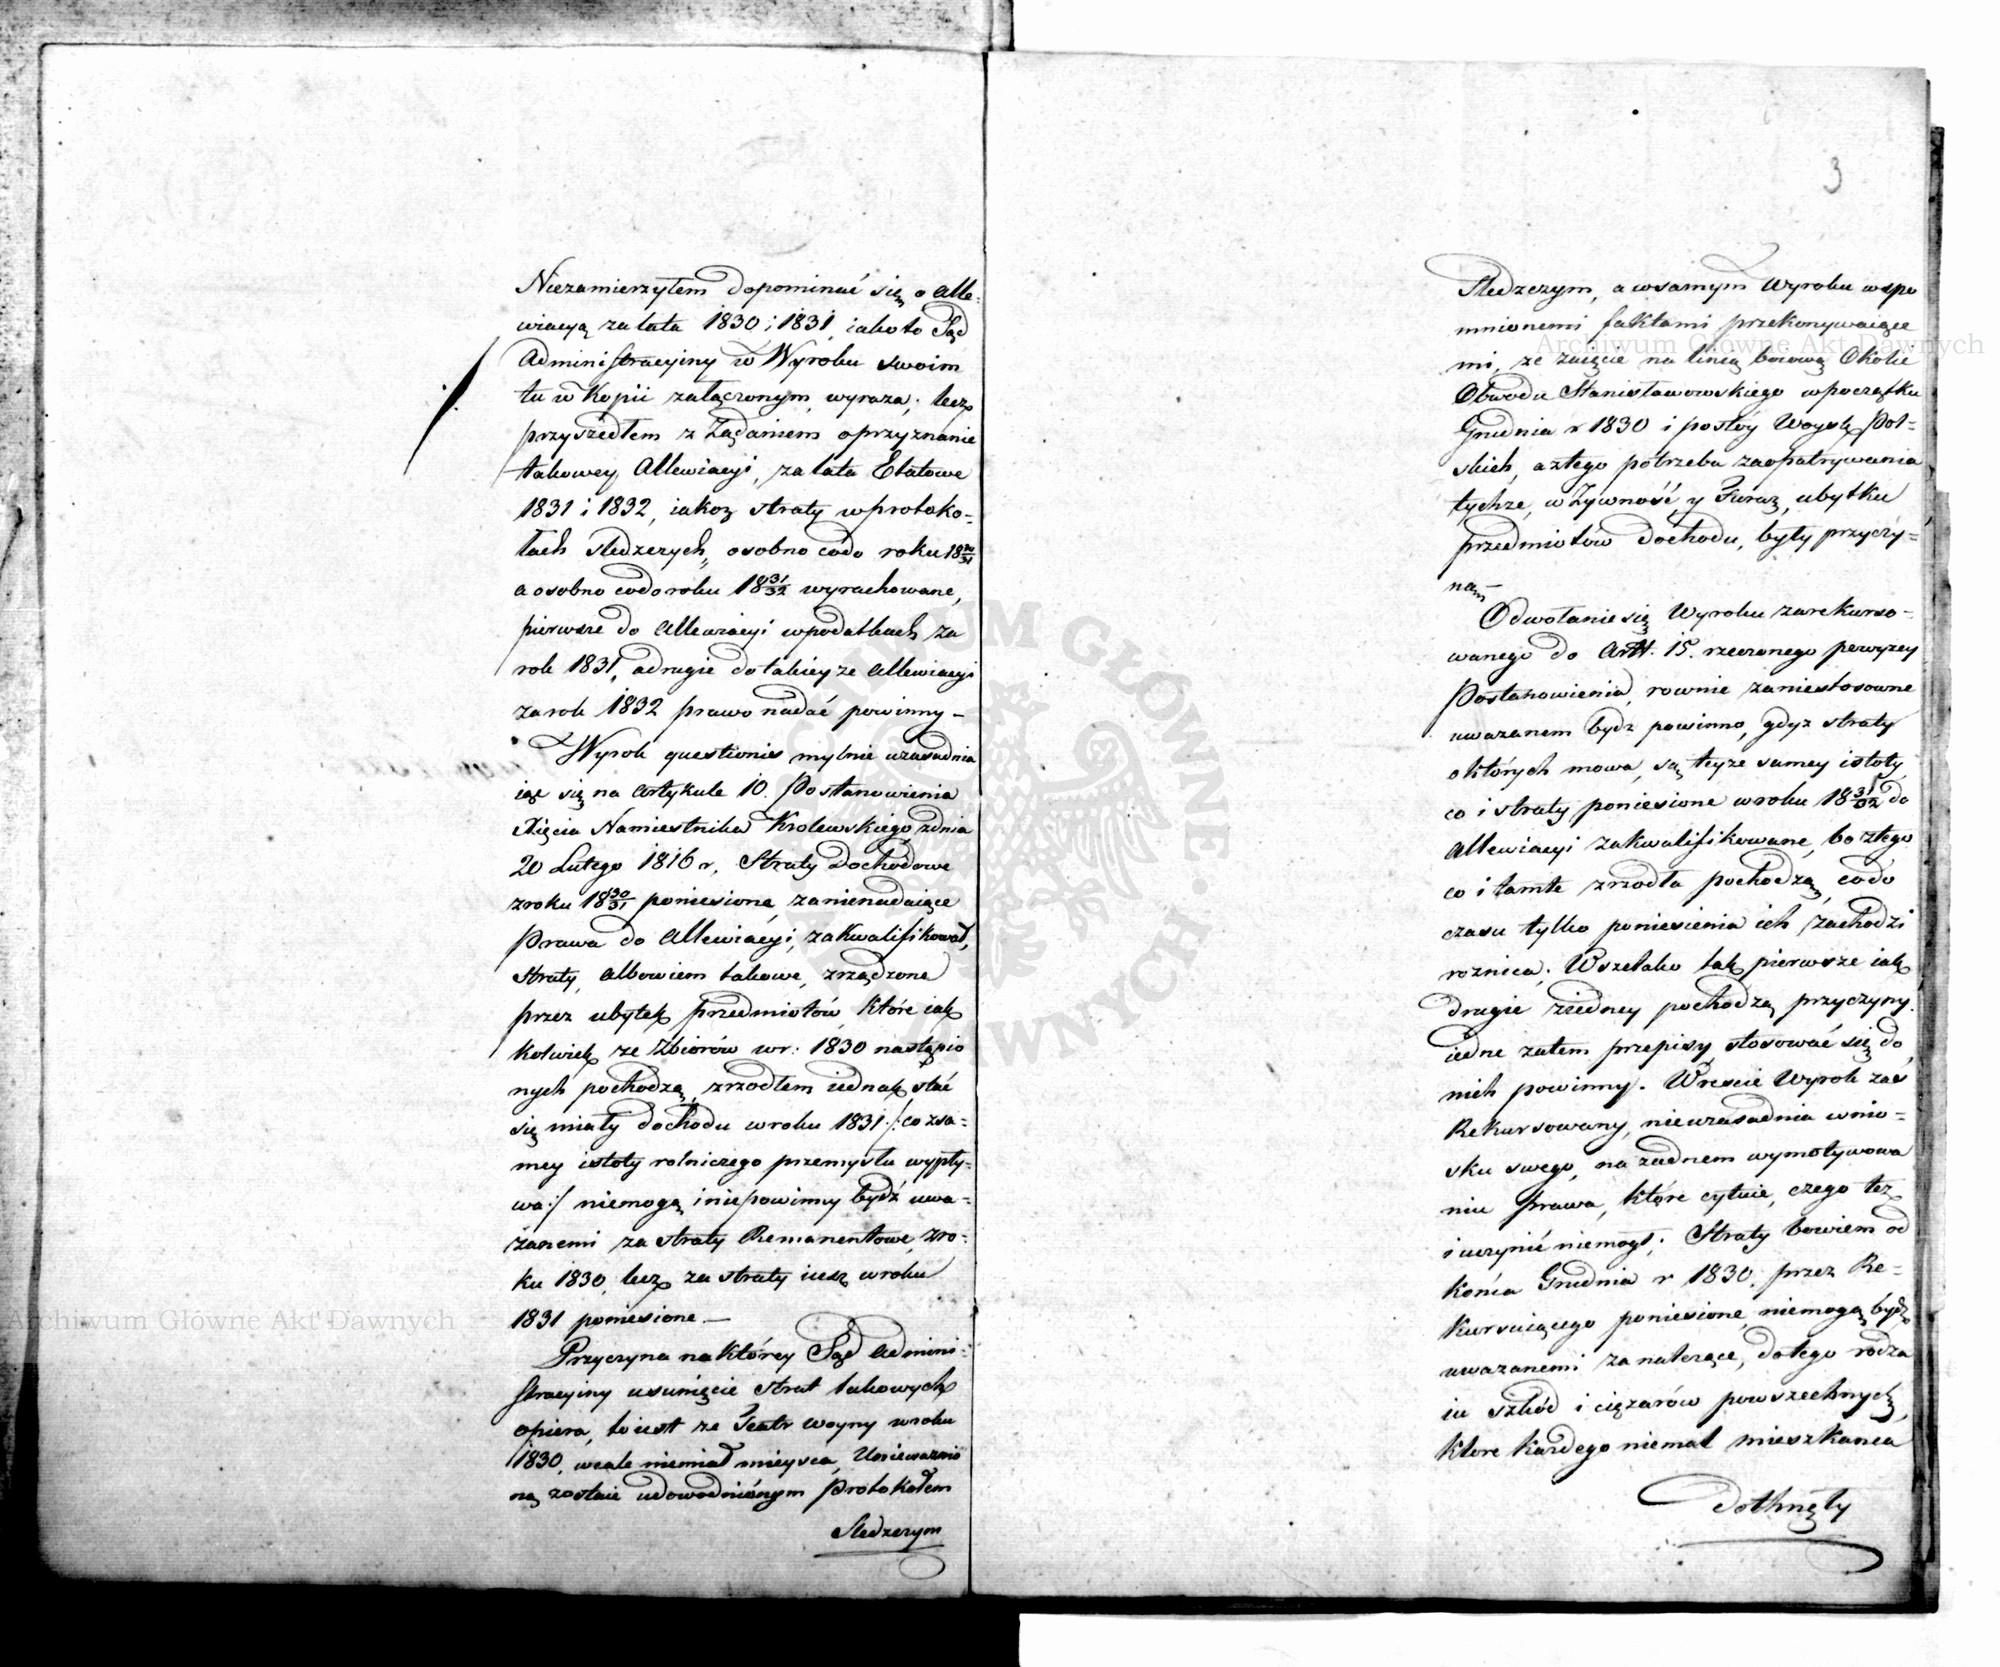 Niezamierzyłem dopominać się o alle-
wiacyą za lata 1830 i 1831, iako to Sąd
Administracyiny w Wyroku swoim
tu w Kopii załączonym, wyraza; lecz
przyszedłem z Żądaniem o przyznanie
takowey Allewiacyi, za lata Etatowe
1831 i 1832, iakoż straty w protoko-
łach sledzczych, osobno codo roku 18 30/31
a osobno codo roku 18 31/32 wyrachowane,
pierwsze do Allewiacyi w podatkach za
rok 1831, a drugie do takiey ze Allewiacyi
za rok 1832 prawo nadać powinny –
Wyrok questionis mylnie uzasadnia
iąc się na Artykule 10. Postanowienia
Xięcia Namiestnika Krolewskiego z dnia
20 Lutego 1816 r, Straty Dochodowe
z roku 18 30/31 poniesione, za nienadaiące
Prawa do Allewiacyi, zakwalifikował,
straty, albowiem takowe, zrządzone
przez ubytek przedmiotów, które iak
kolwiek ze Zbiorów w r: 1830 nastąpio
nych pochodzą, zrzodłem iednak stać
się miały dochodu w roku 1831 /: co zsa-
mey istoty rolniczego przemysłu wypły-
wa :/ niemogą i niepowinny bydź uwa-
żanemi za straty Remanentowe, z ro-
ku 1830, lecz za straty iuż w roku
1831 poniesione –
Przyczyna na którey Sąd Admini-
stracyiny usunięcie strat takowych
opiera, to iest ze Teatr woyny w roku
1830, wcale niemiał mieysca, Unieważnio
ną zostaie udowodnionym Protokołem
Sledzczym
3
Sledzczym, a w samym Wyroku wspo
mnionemi faktami przekonywaiące
mi, ze zaięcie na linią boiową Okolic
Obwodu Stanisławowskiego w początku
Grudnia r 1830 i postóy Woysk Pol-
skich, a ztego potrzeba zaopatrywania
tychże, w Żywność, y Furaz, ubytku
przedmiotów dochodu, były przyczy-
ną –
Odwołanie się Wyroku zarekurso-
wanego do Artt. 15. rzeczonego powyzey
Postanowienia, rownie za niestosowne
uwazanem bydz powinno, gdyz straty
o których mowa, są teyze samey istoty
co i straty poniesione w roku 18 31/32 do
Allewiacyi zakwalifikowane, bo ztego
co i tamte zrzodła pochodzą, codo
czasu tylko poniesienia ich zachodzi
roznica. Wszelako tak pierwsze iak
drugie z iedney pochodzą przyczyny.
iedne zatem przepisy stosować się do
nich powinny. Wreście Wyrok zas
Rekursowany, nieuzasadnia wnio-
sku swego, na żadnem wymotywowa
niu Prawa, które cytuie, czego też
i uczynić niemogł; Straty bowiem od
końca Grudnia r 1830. przez Re-
kursuiącego poniesione, niemogą bydz
uwazanemi za nalezące, do tego rodza
iu szkód i cięzarów powszechnych,
ktore każdego niemal mieszkanca
dotknęły
Archiwum Główne Akt Dawnych
Archiwum Główne Akt Dawnych
ARCHIWUM GŁÓWNE AKT DAWNYCH